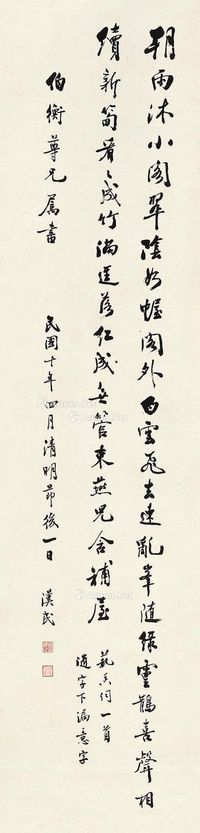 朝雨沐小閣翠陰如幄閣外白雲飛去速亂峯隨綠靈鵲喜聲相
續新筍看〻成竹滿逕落紅成無管束燕兒含補屋
藝香詞一首
隨字下漏意字
伯衡尊兄屬書
民國十年四月清明節後一日
漢民